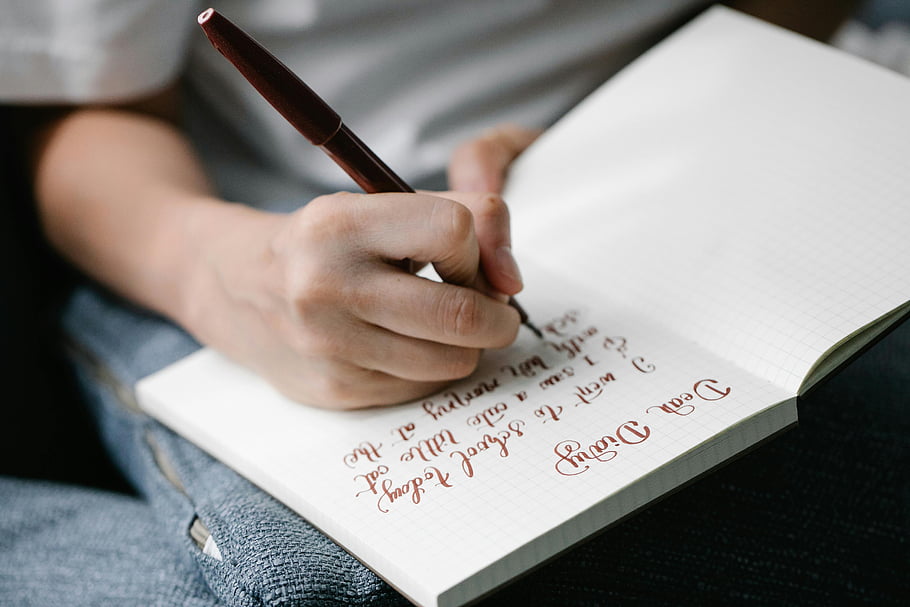 Dear Diary
I went to school today
I saw a cute little cat
with mommy at the